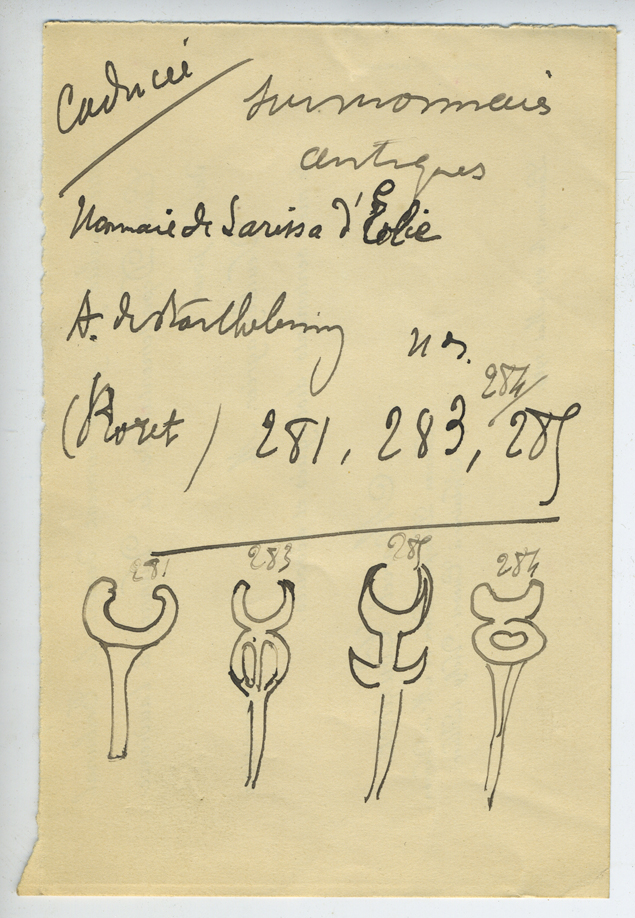 Caducée
sur monnaies
antiques
Monnaie de Larissa d'Éolie
A. de Barthelemy nos.
284/
(Roret) 281, 283, 285
281 283 285 284